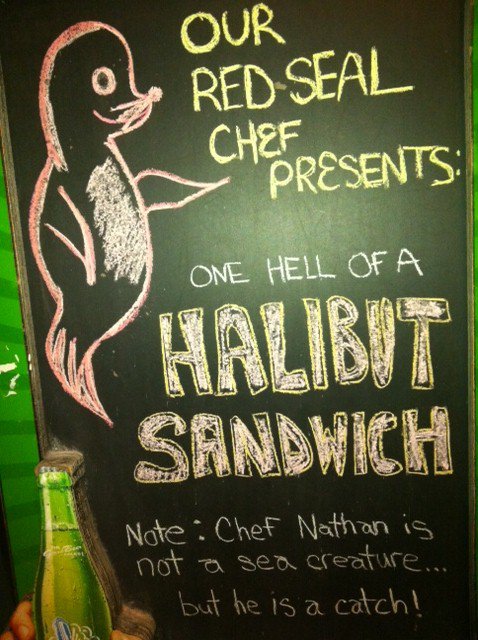 OUR
RED-SEAL
CHEF
PRESENTS:
ONE HELL OF A
HALIBUT
SANDWICH
Note: Chef Nathan is
not a sea creature...
but he is a catch!